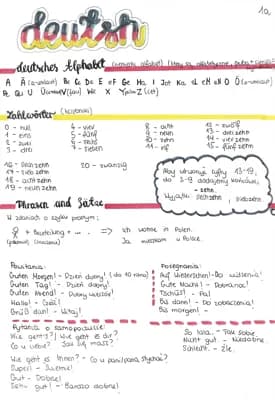 1a
deutsch
deutsches Alphabet
A Ä (a-umlaut) Be Ce De E eF Ge Ha I Jot Ka eL eM eN O Ö (o-umlaut)
Pe Qu U Ü We X Z (cet)
Zahlwörter
0 - null 4 - vier 8 - acht 12 - zwölf
1 - eins 5 - fünf 9 - neun 13 - dreizehn
2 - zwei 6 - sechs 10 - zehn 14 - vierzehn
3 - drei 7 - sieben 11 - elf 15 - fünfzehn
16 - sechzehn 20 - zwanzig
17 - siebzehn
18 - achtzehn
19 - neunzehn
Aby utworzyć cyfry 13-19,
do 3-9 dodajemy końcówkę
- zehn.
Wyjątki: sechzehn, siebzehn
Phrasen und Sätze
W zdaniach o szyku prostym:
+ ... → Ich wohne in Polen.
(podmiot) Ja mieszkam w Polsce.
Powitania:
Guten Morgen! - Dzień dobry! (do 10 rano)
Guten Tag! - Dzień dobry!
Guten Abend! - Dobry wieczór!
Hallo! - Cześć!
Grüß dich! - Witaj!
Pożegnania:
Auf Wiedersehen! - Do widzenia!
Gute Nacht! - Dobranoc!
Tschüs! - Pa!
Bis dann! - Do zobaczenia!
Bis morgen! -
Pytania o samopoczucie:
Wie geht's? / Wie geht es dir?
Co u ciebie? Jak się masz?
Wie geht es Ihnen? - Co u pana/pani słychać?
Super! - Świetnie!
Gut - Dobrze!
Sehr gut! - Bardzo dobrze!
So lala. - Tak sobie
Nicht gut. - Niedobrze
Schlecht. - Źle.